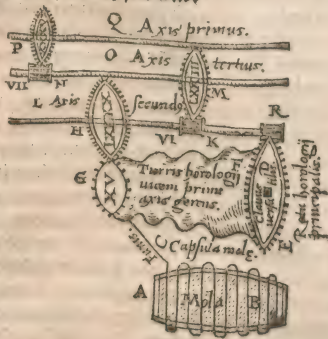 Q Axis primus.
P
O Axis tertius.
VII N
M
L Axis secundus
R
H
VI K
F
D
Turris horologij
vicem primi
axis gerens.
G
XV
Rota horologij
principalis.
E
C Capsula molę.
Funis
A Mola B